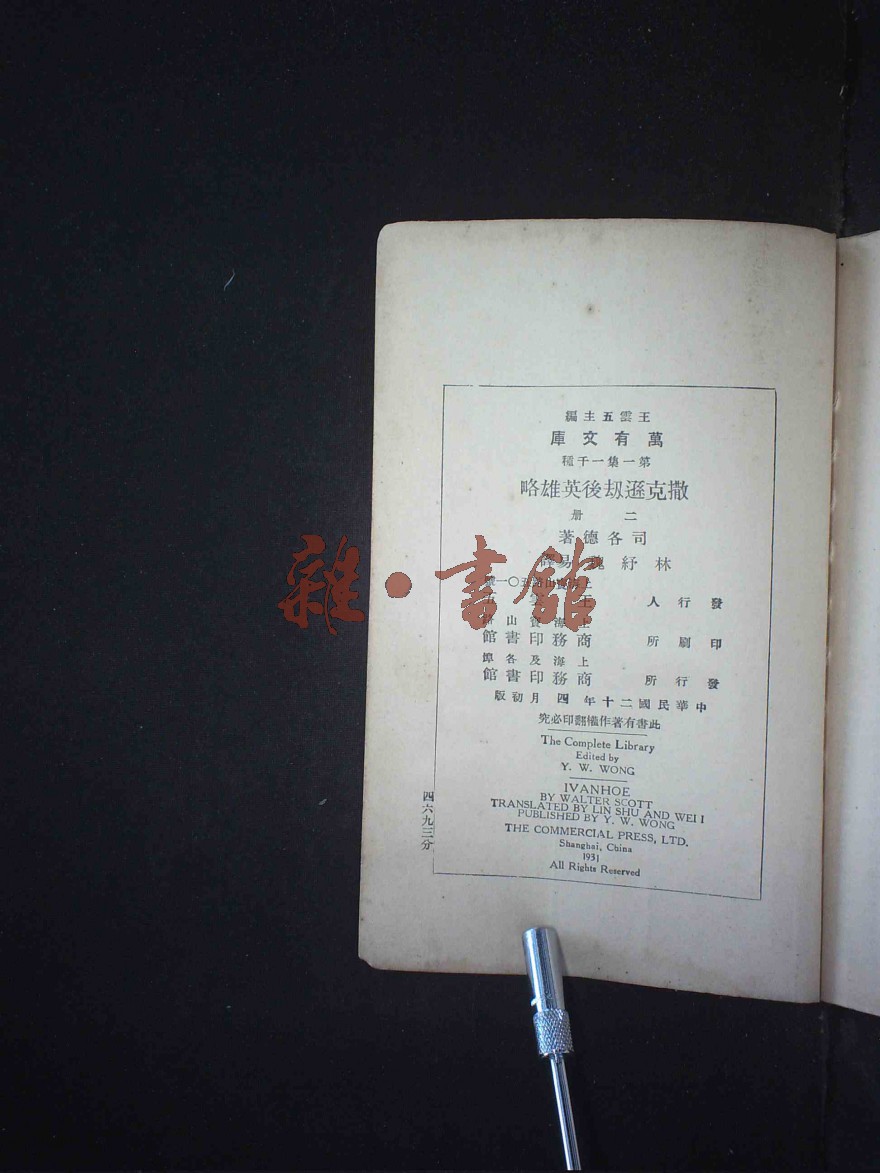 王雲五主編
萬有文庫
第一集一千種
撒克遜劫後英雄略
二册
司各德著
林紓 魏易譯
發行人 王雲五
印刷所 商務印書館
上海及各埠
發行所 商務印書館
中華民國二十年四月初版
此書有著作權翻印必究
The Complete Library
Edited by
Y. W. WONG
IVANHOE
BY WALTER SCOTT
TRANSLATED BY LIN SHU AND WEI I
PUBLISHED BY Y. W. WONG
THE COMMERCIAL PRESS, LTD.
Shanghai, China
1931
All Rights Reserved
四六九三分
雜·書館